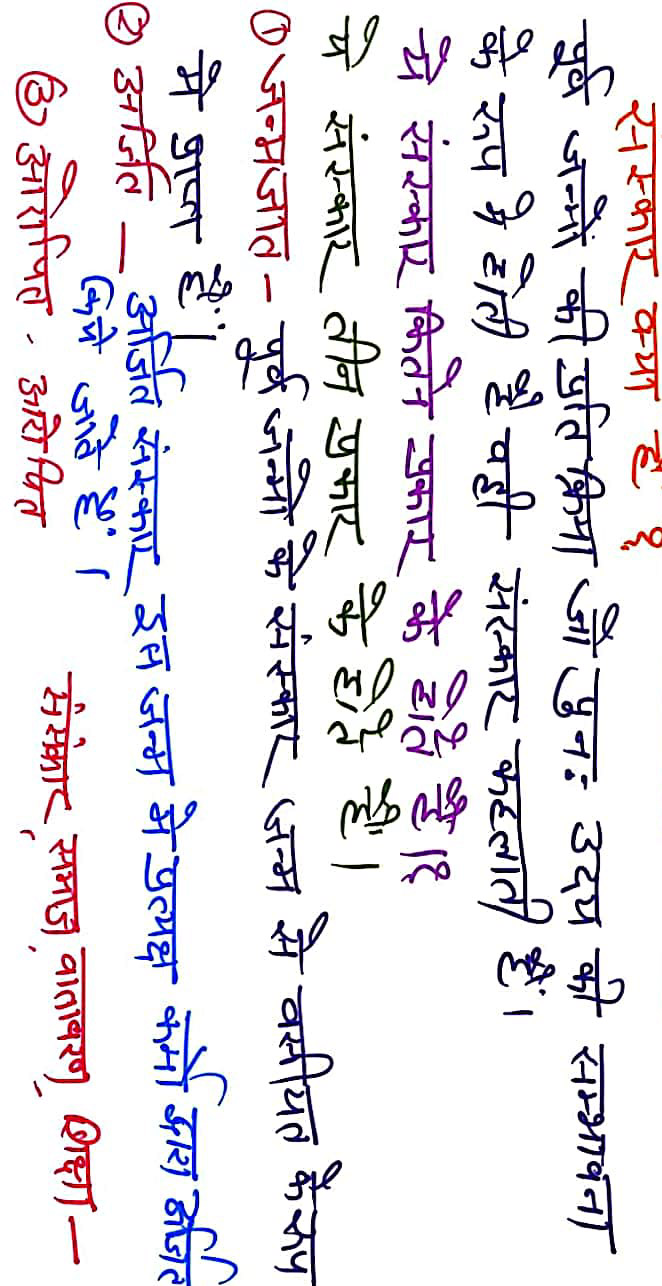 सस्कार क्या है?
पूर्व जन्मो की प्रतिक्रिया जो पुनः उदय की सम्भावना
के रूप मे होती है वही संस्कार कहलाती है।
ये संस्कार कितने प्रकार के होते है।?
ये संस्कार तीन प्रकार के होते है।
① जन्मजात - पूर्व जन्मो के संस्कार जन्म से वसीयत के रूप
मे प्राप्त है।
② अर्जित — अर्जित संस्कार इस जन्म मे प्रत्यक्ष कर्मो द्वारा अर्जित
किये जाते है।
③ आरोपित - आरोपित संस्कार, समाज, वातावरण, शिक्षा —